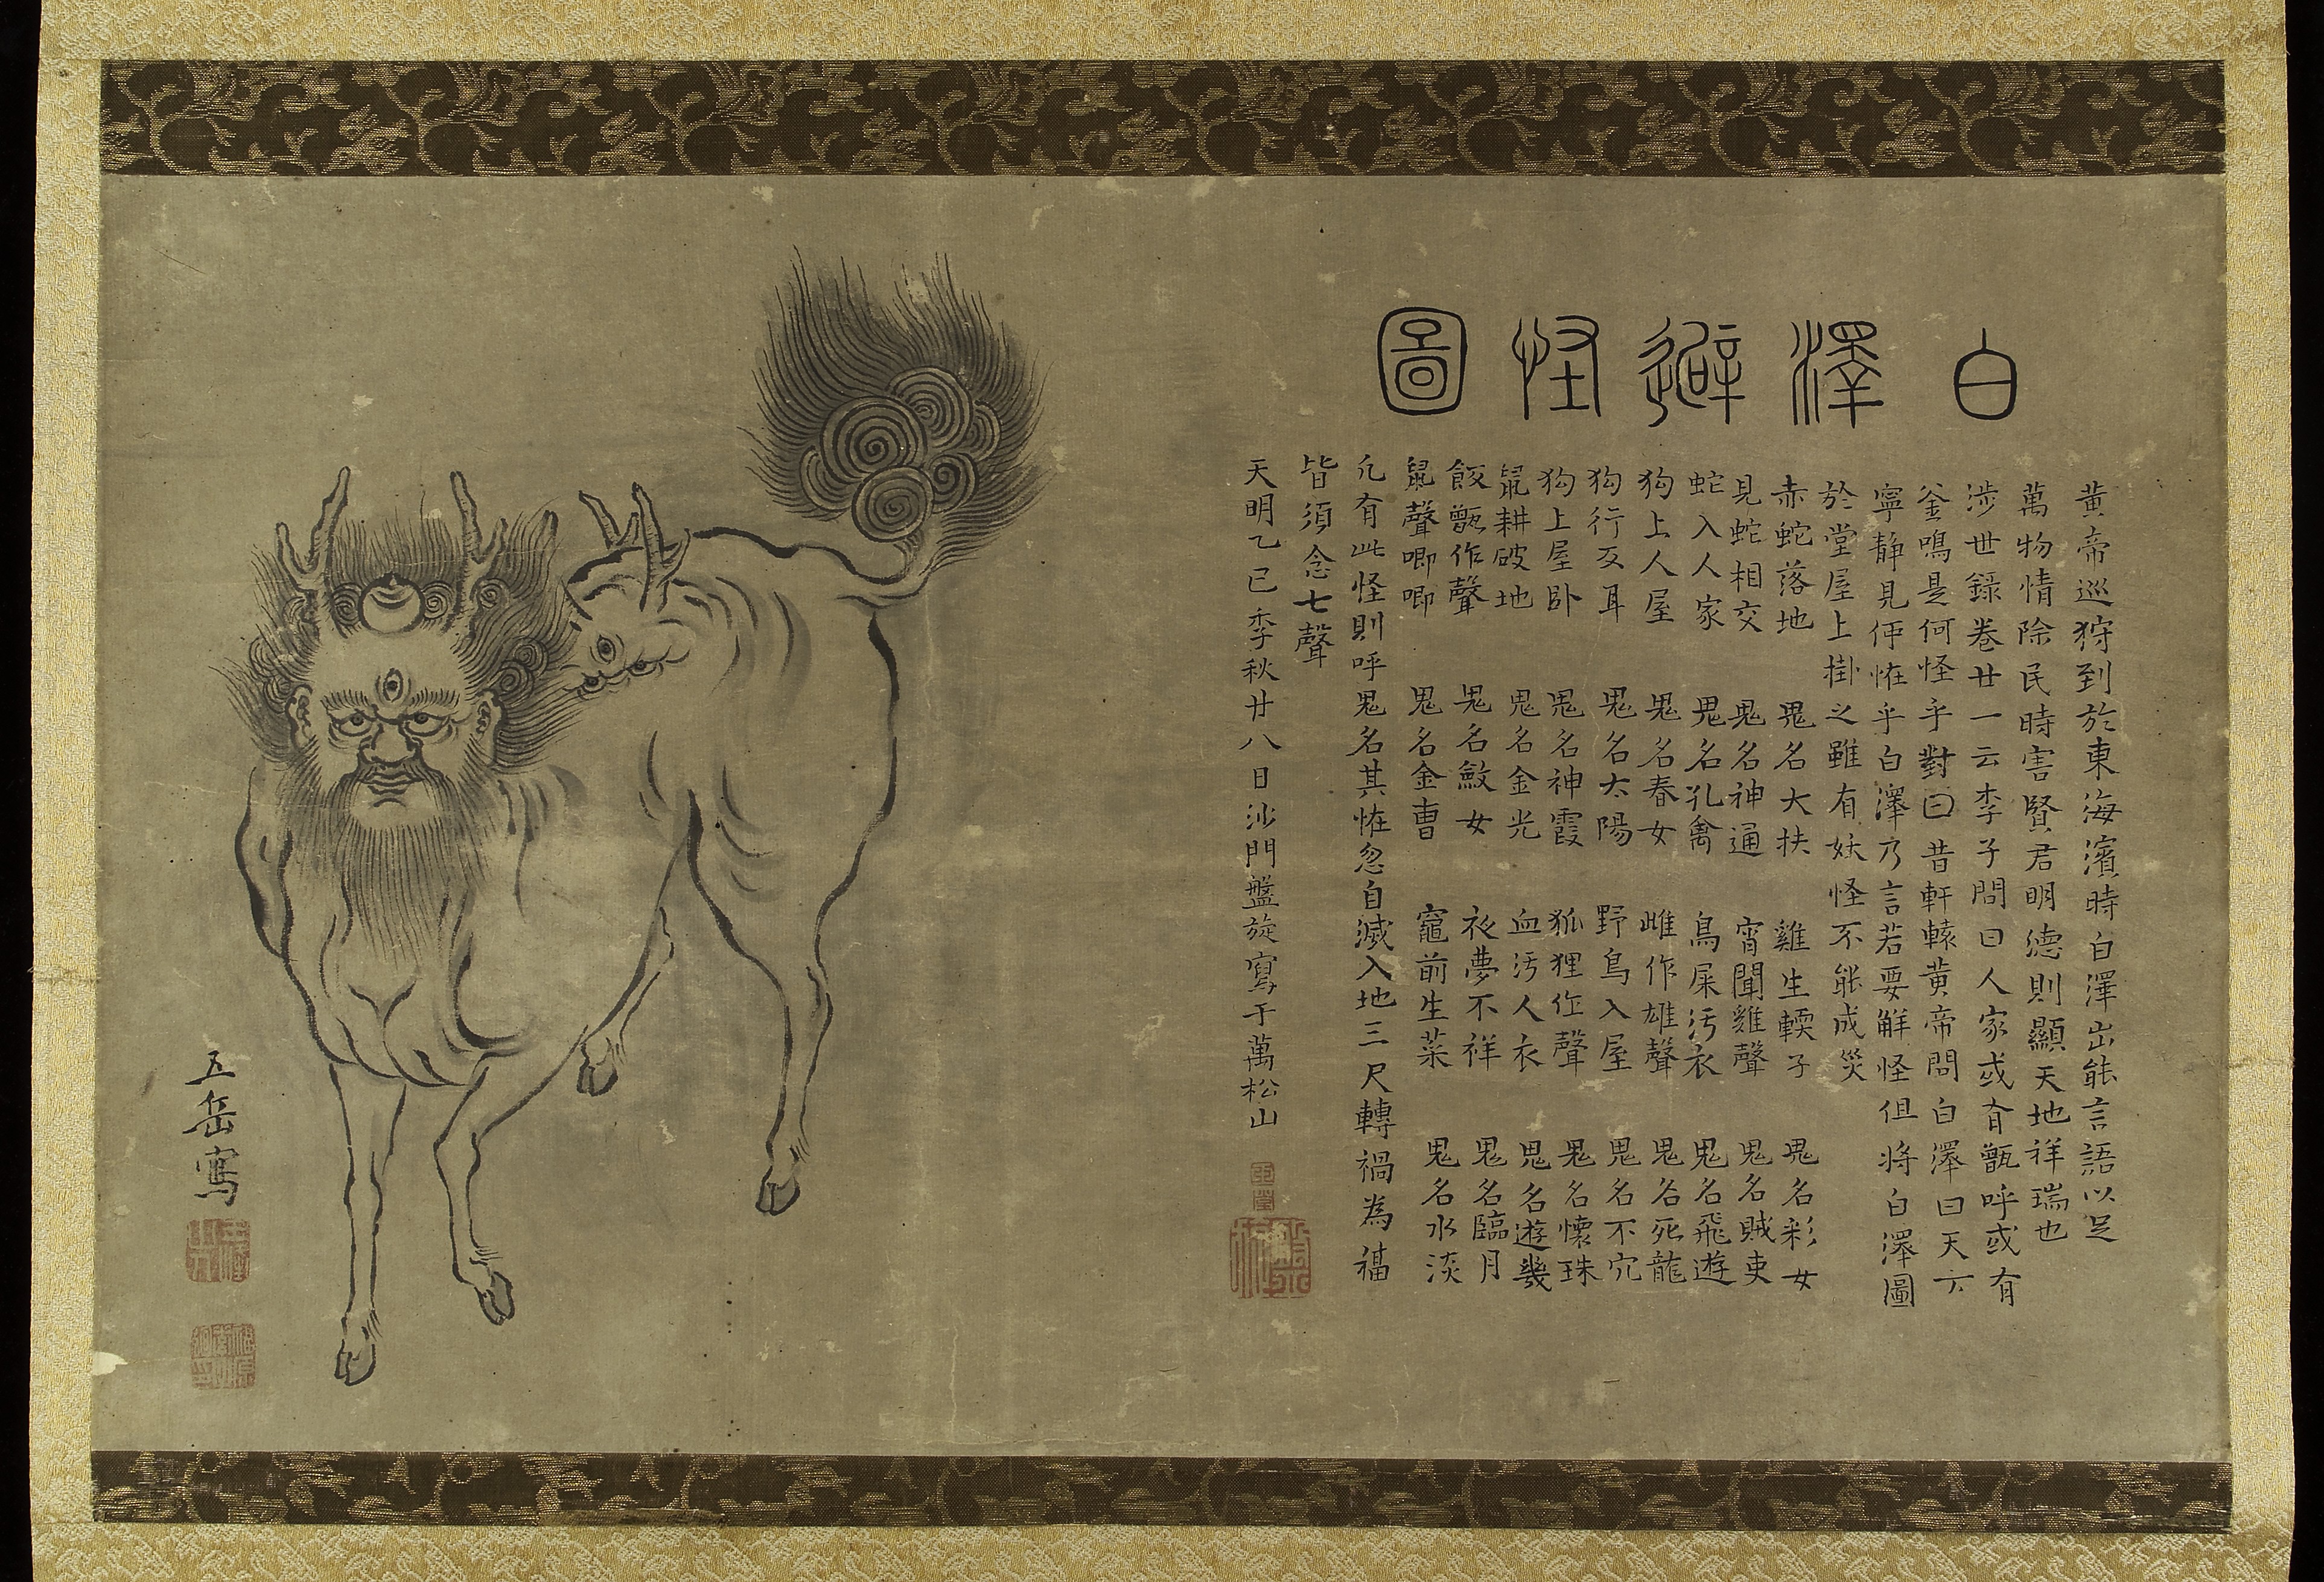 白澤避怪圖
黃帝巡狩到於東海濱時白澤出能言語以足
萬物情除民時害賢君明德則顯天地祥瑞也
涉世錄卷廿一云李子問曰人家或有甑呼或有
釜鳴是何怪乎對曰昔軒轅黃帝問白澤曰天下
寧靜見何恠乎白澤乃言若要解怪但將白澤圖
於堂屋上掛之雖有妖怪不能成災
赤蛇落地 鬼名大扶 雞生軟子 鬼名彩女
見蛇相交 鬼名神通 宵聞雞聲 鬼名賊吏
蛇入人家 鬼名孔禽 鳥屎污衣 鬼名飛遊
狗上人屋 鬼名春女 雌作雄聲 鬼名死龍
狗行反耳 鬼名太陽 野鳥入屋 鬼名不穴
狗上屋卧 鬼名神霞 狐狸作聲 鬼名懷珠
鼠耕破地 鬼名金光 血污人衣 鬼名遊幾
飯甑作聲 鬼名斂女 夜夢不祥 鬼名臨月
鼠聲唧唧 鬼名金曹 竈前生菜 鬼名水淡
凢有此怪則呼鬼名其恠忽自滅入地三尺轉禍為福
皆須念七聲
天明乙巳季秋廿八日沙門盤旋寫于萬松山
五岳寫